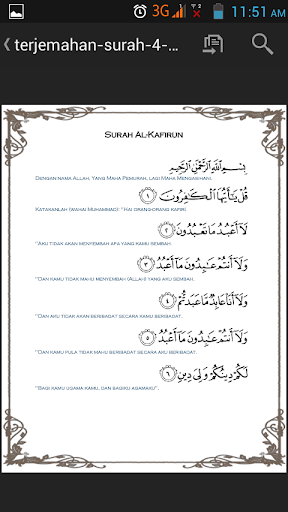 3G 11:51 AM
terjemahan-surah-4-...
SURAH AL-KAFIRUN
بِسْمِ اللَّهِ الرَّحْمَٰنِ الرَّحِيمِ
DENGAN NAMA ALLAH, YANG MAHA PEMURAH, LAGI MAHA MENGASIHANI.
قُلْ يَا أَيُّهَا الْكَافِرُونَ ١
KATAKANLAH (WAHAI MUHAMMAD): "HAI ORANGORANG KAFIR!
لَا أَعْبُدُ مَا تَعْبُدُونَ ٢
"AKU TIDAK AKAN MENYEMBAH APA YANG KAMU SEMBAH.
وَلَا أَنتُمْ عَابِدُونَ مَا أَعْبُدُ ٣
"DAN KAMU TIDAK MAHU MENYEMBAH (ALLAH) YANG AKU SEMBAH.
وَلَا أَنَا عَابِدٌ مَّا عَبَدتُّمْ ٤
"DAN AKU TIDAK AKAN BERIBADAT SECARA KAMU BERIBADAT.
وَلَا أَنتُمْ عَابِدُونَ مَا أَعْبُدُ ٥
"DAN KAMU PULA TIDAK MAHU BERIBADAT SECARA AKU BERIBADAT.
لَكُمْ دِينُكُمْ وَلِيَ دِينِ ٦
"BAGI KAMU UGAMA KAMU, DAN BAGIKU AGAMAKU".